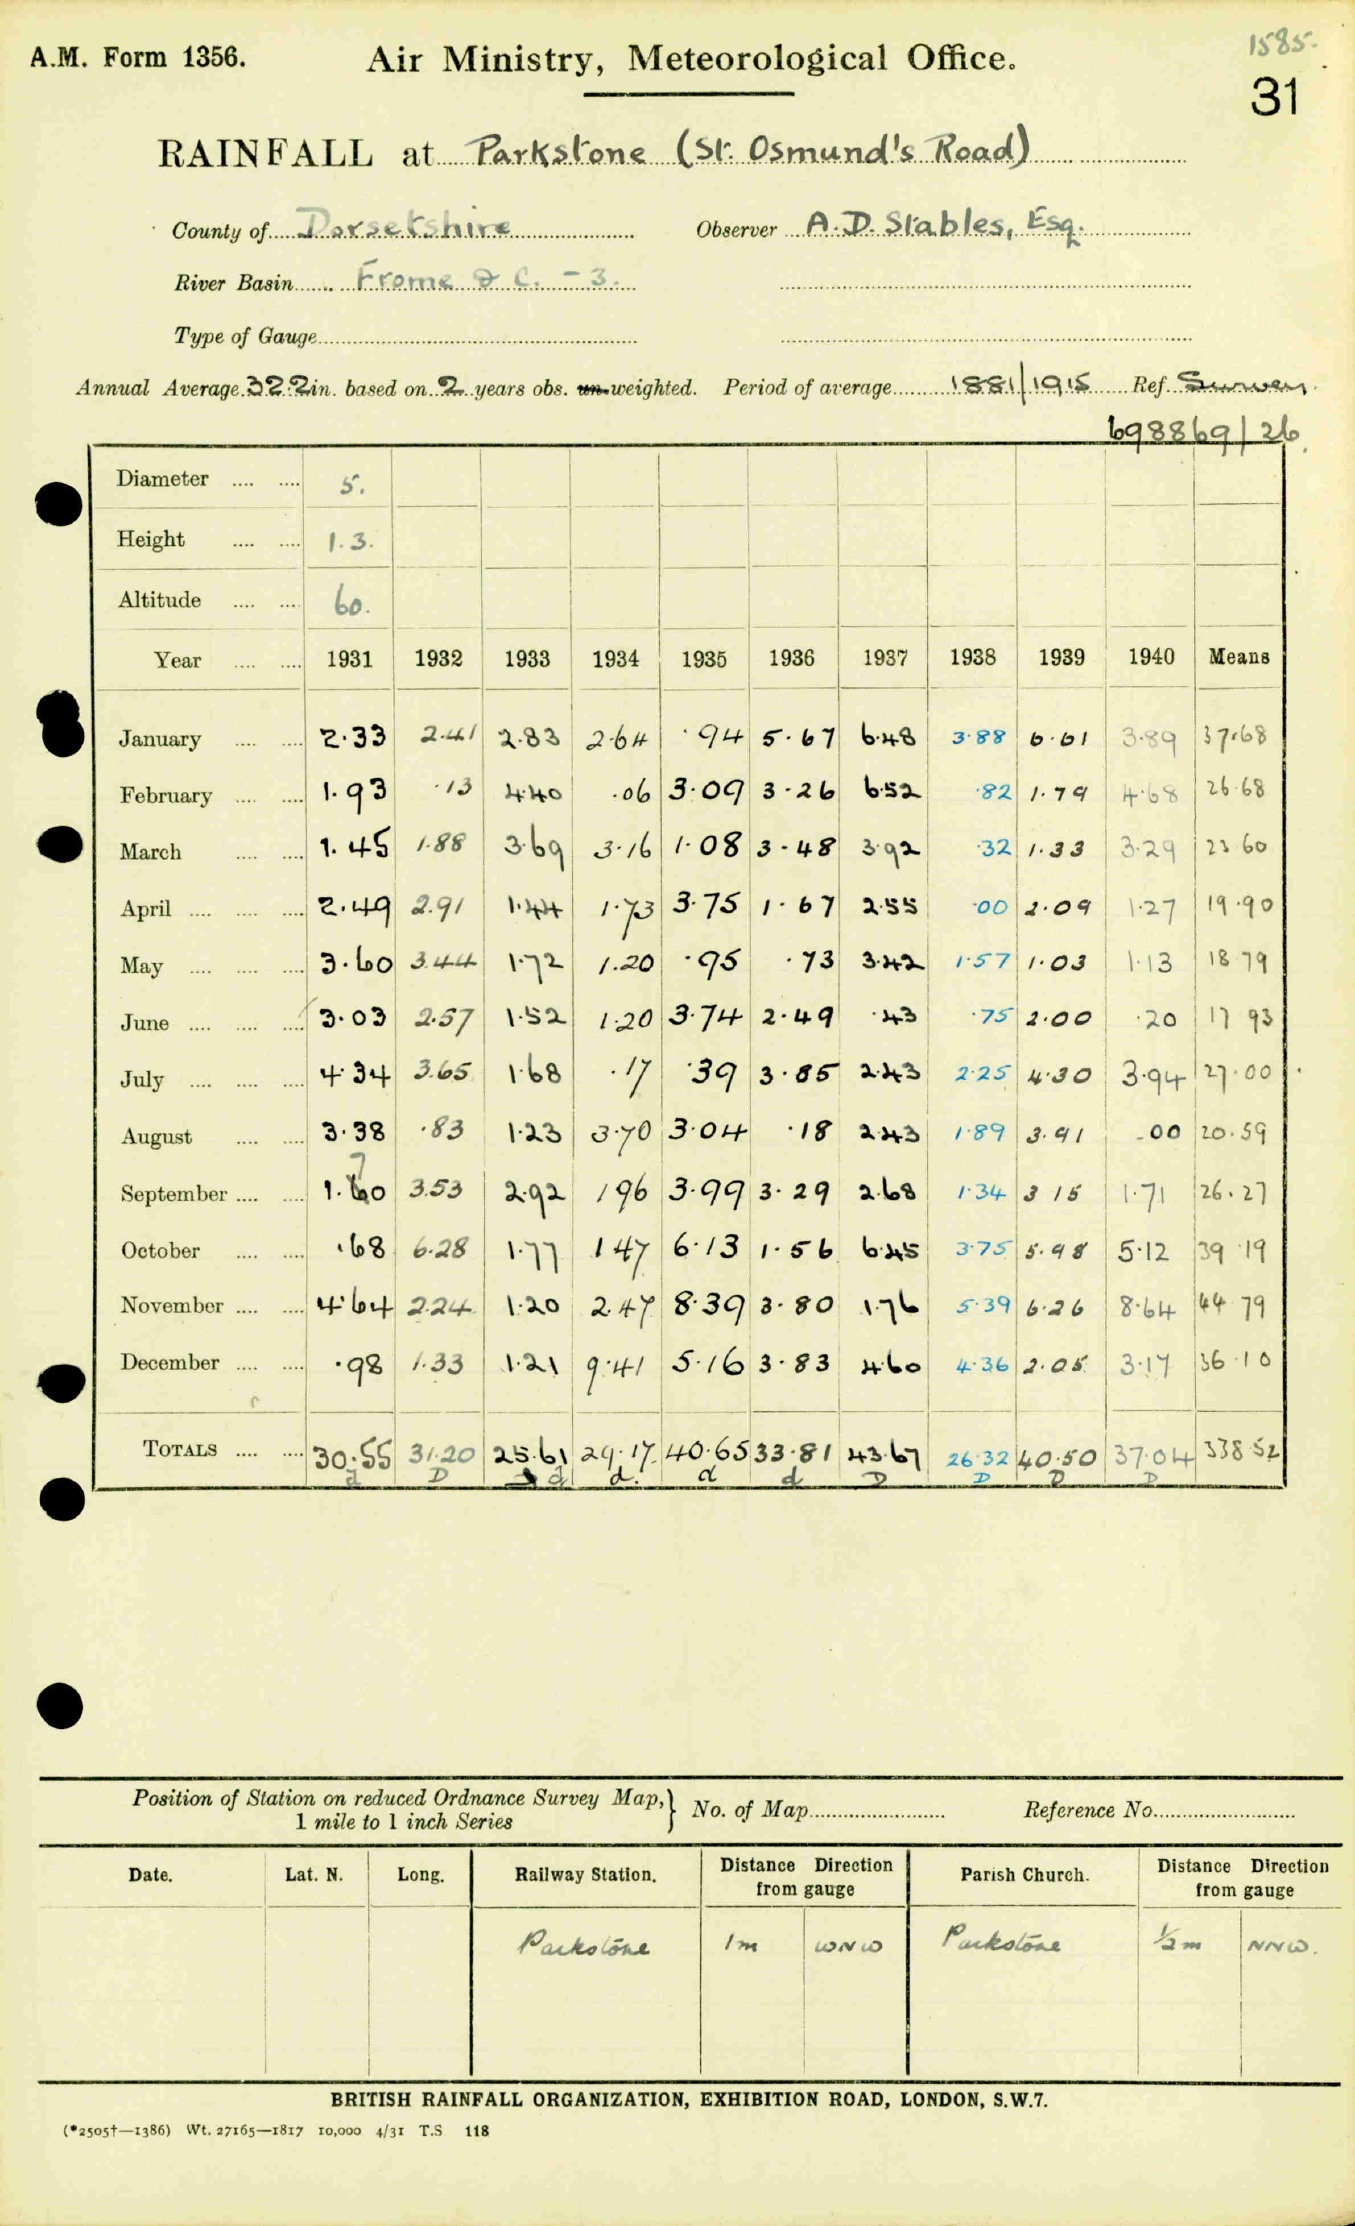 1585.
A.M. Form 1356. Air Ministry, Meteorological Office.
31
RAINFALL at Parkstone (St. Osmund's Road)
County of Dorsetshire Observer A.D. Stables, Esq.
River Basin Frome & C. - 3.
Type of Gauge
Annual Average 32.2 in. based on 2 years obs. un-weighted. Period of average 1881/1915 Ref. Survey
698869/26
Diameter 5.
Height 1.3.
Altitude 60.
Year 1931 1932 1933 1934 1935 1936 1937 1938 1939 1940 Means
January 2.33 2.41 2.83 2.64 .94 5.67 6.48 3.88 6.61 3.89 37.68
February 1.93 .13 4.40 .06 3.09 3.26 6.52 .82 1.79 4.68 26.68
March 1.45 1.88 3.69 3.16 1.08 3.48 3.92 .32 1.33 3.29 23 60
April 2.49 2.91 1.44 1.73 3.75 1.67 2.55 .00 2.09 1.27 19.90
May 3.60 3.44 1.72 1.20 .95 .73 3.42 1.57 1.03 1.13 18 79
June 3.03 2.57 1.52 1.20 3.74 2.49 .43 .75 2.00 .20 17 93
July 4.34 3.65 1.68 .17 .39 3.85 2.43 2.25 4.30 3.94 27.00
August 3.38 .83 1.23 3.70 3.04 .18 2.43 1.89 3.91 .00 20.59
September 1.70 3.53 2.92 1 96 3.99 3.29 2.68 1.34 3 15 1.71 26.27
October .68 6.28 1.77 1 47 6.13 1.56 6.45 3.75 5.98 5.12 39 19
November 4.64 2.24 1.20 2.47 8.39 3.80 1.76 5.39 6.26 8.64 44 79
December .98 1.33 1.21 9.41 5.16 3.83 4.60 4.36 2.05 3.17 36.10
TOTALS 30.55 31.20 25.61 29.17 40.65 33.81 43.67 26.32 40.50 37.04 338 52
d D d d. d d D D D D
Position of Station on reduced Ordnance Survey Map, 1 mile to 1 inch Series } No. of Map Reference No.
Date. Lat. N. Long. Railway Station. Distance Direction from gauge Parish Church. Distance Direction from gauge
Parkstone 1m WNW Parkstone ½m NNW.
BRITISH RAINFALL ORGANIZATION, EXHIBITION ROAD, LONDON, S.W.7.
(*2505†—1386) Wt. 27165—1817 10,000 4/31 T.S 118